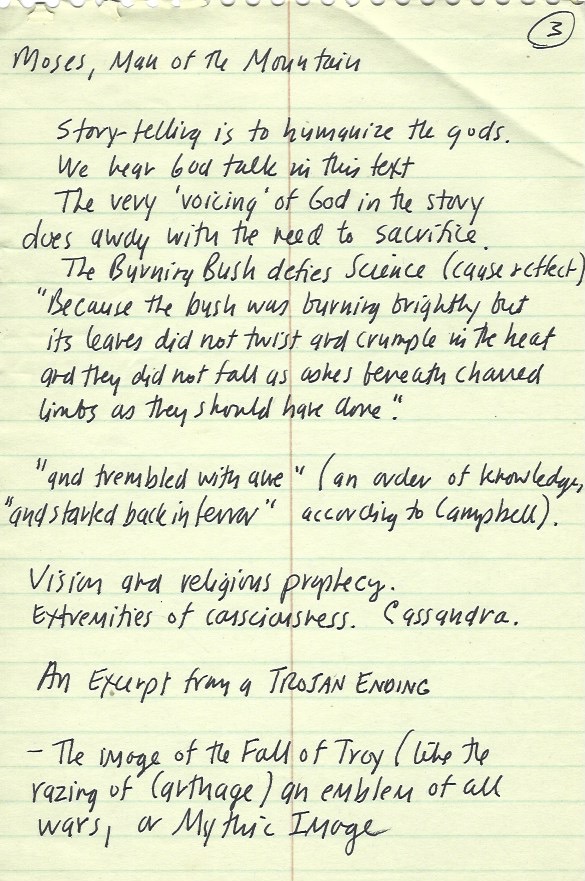 3
Moses, Man of the Mountain
Story-telling is to humanize the gods.
We hear God talk in this text
The very 'voicing' of God in the story
does away with the need to sacrifice.
The Burning Bush defies Science (cause & effect)
"Because the bush was burning brightly but
its leaves did not twist and crumple in the heat
and they did not fall as ashes beneath charred
limbs as they should have done".
"and trembled with awe" (an order of knowledge,
"and started back in terror" according to Campbell).
Vision and religious prophecy.
Extremities of consciousness. Cassandra.
An Excerpt from a TROJAN ENDING
- The image of the Fall of Troy (like the
razing of Carthage) an emblem of all
wars, or Mythic Image